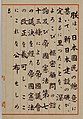 朕は、日本國民の總意に基
いて、新日本建設の礎が、定
まるに至つたことを、深くよ
ろこび、樞密顧問の諮詢及び
帝國憲法第七十三條による
帝國議會の議決を經た帝國
憲法の改正を裁可し、ここに
これを公布せしめる。